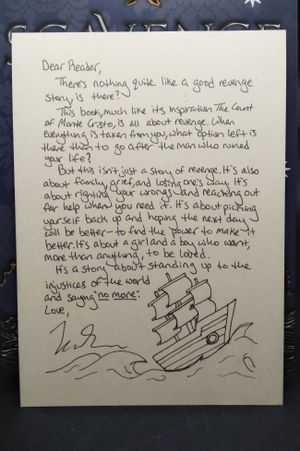 SCAVENGE
Dear Reader,
There's nothing quite like a good revenge
story, is there?
This book, much like its inspiration The Count
of Monte Cristo, is all about revenge. When
everything is taken from you, what option left is
there than to go after the man who ruined
your life?
But this isn't just a story of revenge. It's also
about family, grief, and losing one's way. It's
about righting your wrongs and reaching out
for help when you need it. It's about picking
yourself back up and hoping the next day
will be better - to find the power to make it
better. It's about a girl and a boy who want,
more than anything, to be loved.
It's a story about standing up to the
injustices of the world
and saying "no more."
Love,